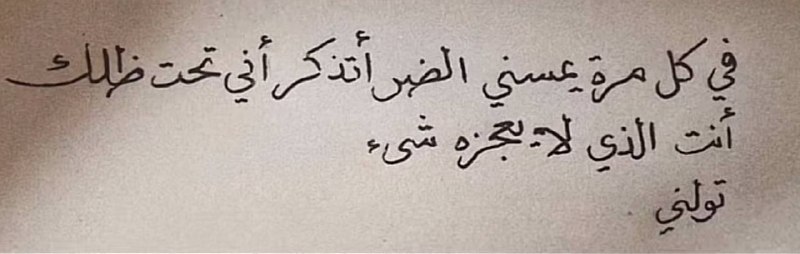 في كل مرة يمسني الضر أتذكر أني تحت ظلك
أنت الذي لا يعجزه شيء
تولني